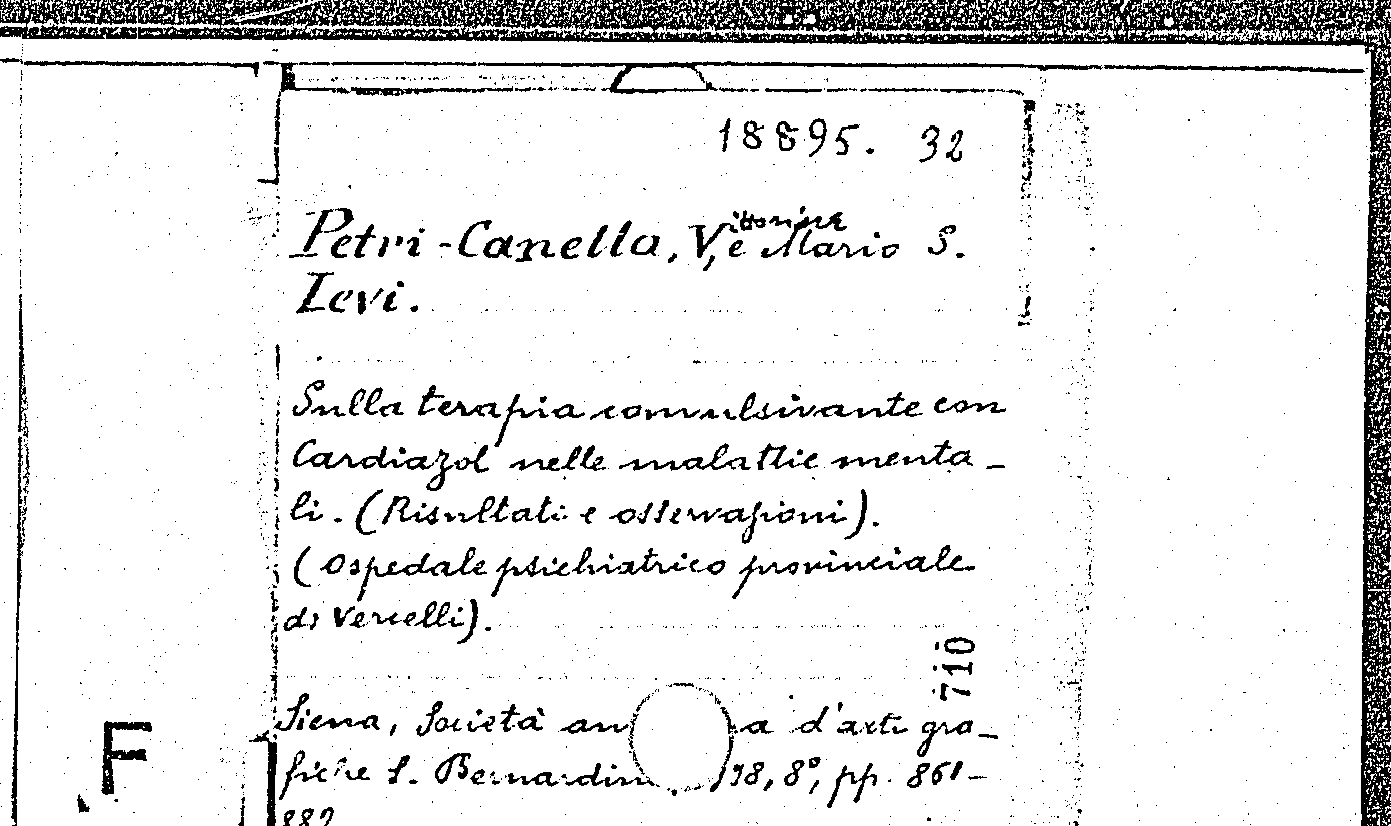 18895. 32
Petri-Canella, Vittorina e Mario S.
Levi.
Sulla terapia convulsivante con
Cardiazol nelle malattie menta-
li. (Risultati e osservazioni).
(Ospedale psichiatrico provinciale
di Vercelli).
710
Siena, Società an a d'arti gra-
fiche S. Bernardin 38, 8°, pp. 861-
882
F